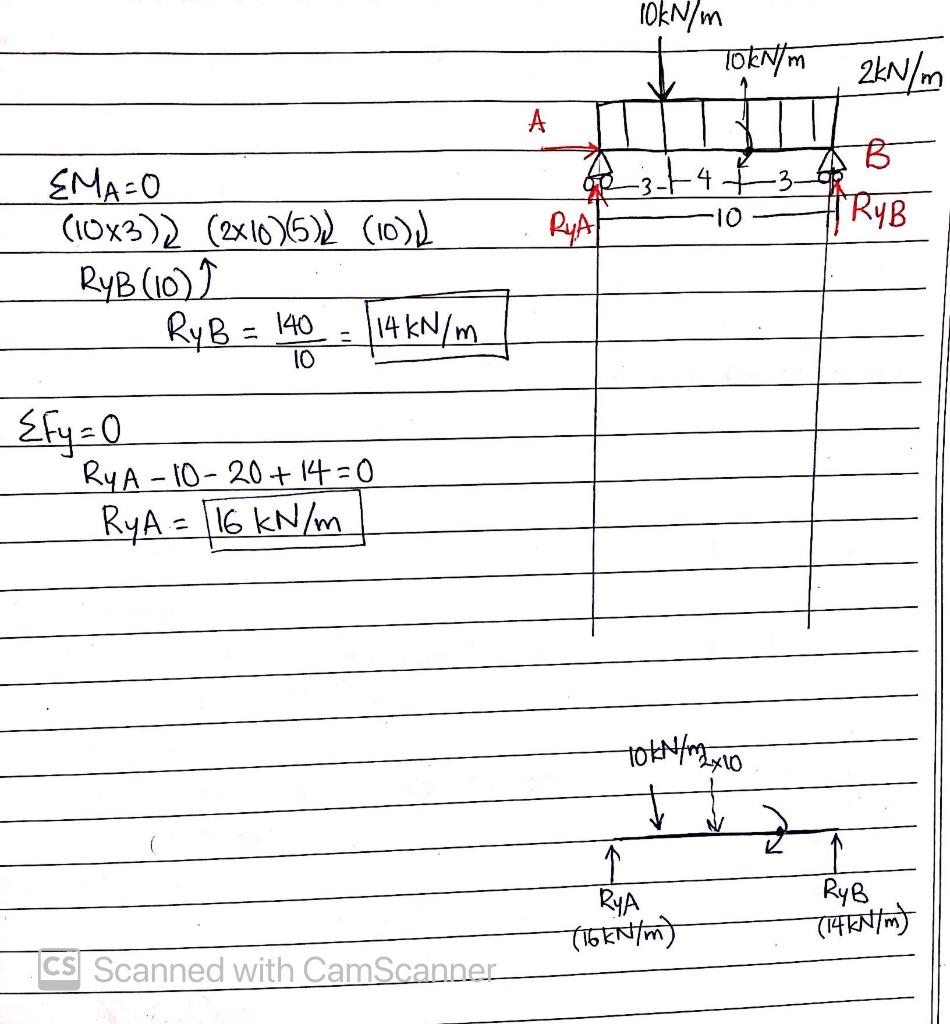 10kN/m
10kN/m
2kN/m
A
B
3 4 3
10
RyA
RyB
ΣMA=0
(10x3)⤸ (2x10)(5)⤸ (10)⤸
RyB (10)↑
RyB = 140/10 = 14 kN/m
ΣFy=0
RyA - 10 - 20 + 14 = 0
RyA = 16 kN/m
10kN/m 2x10
RyA
(16kN/m)
RyB
(14kN/m)
CS Scanned with CamScanner